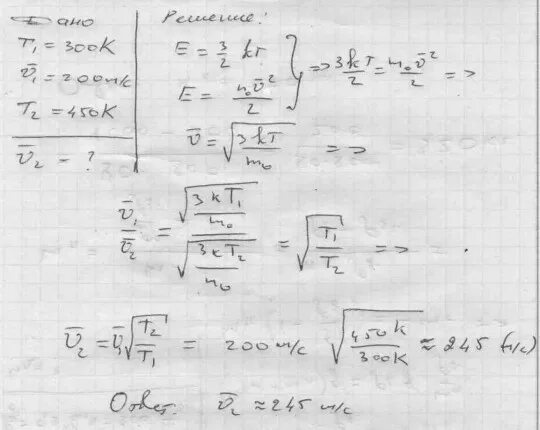 Дано
T₁ = 300K
v̄₁ = 200 м/с
T₂ = 450K
v̄₂ - ?
Решение:
E = 3/2 kT
E = m₀v̄²/2
=> 3kT/2 = m₀v̄²/2 =>
v̄ = √(3kT/m₀) =>
v̄₁/v̄₂ = √(3kT₁/m₀)/√(3kT₂/m₀) = √(T₁/T₂) =>
v̄₂ = v̄₁√(T₂/T₁) = 200 м/с √(450K/300K) ≈ 245 (м/с)
Ответ. v̄₂ ≈ 245 м/с